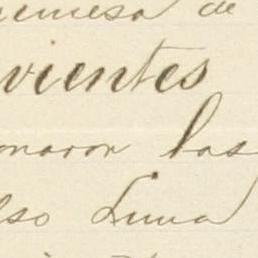 remesa de
vientes
onaron las
lso Luna